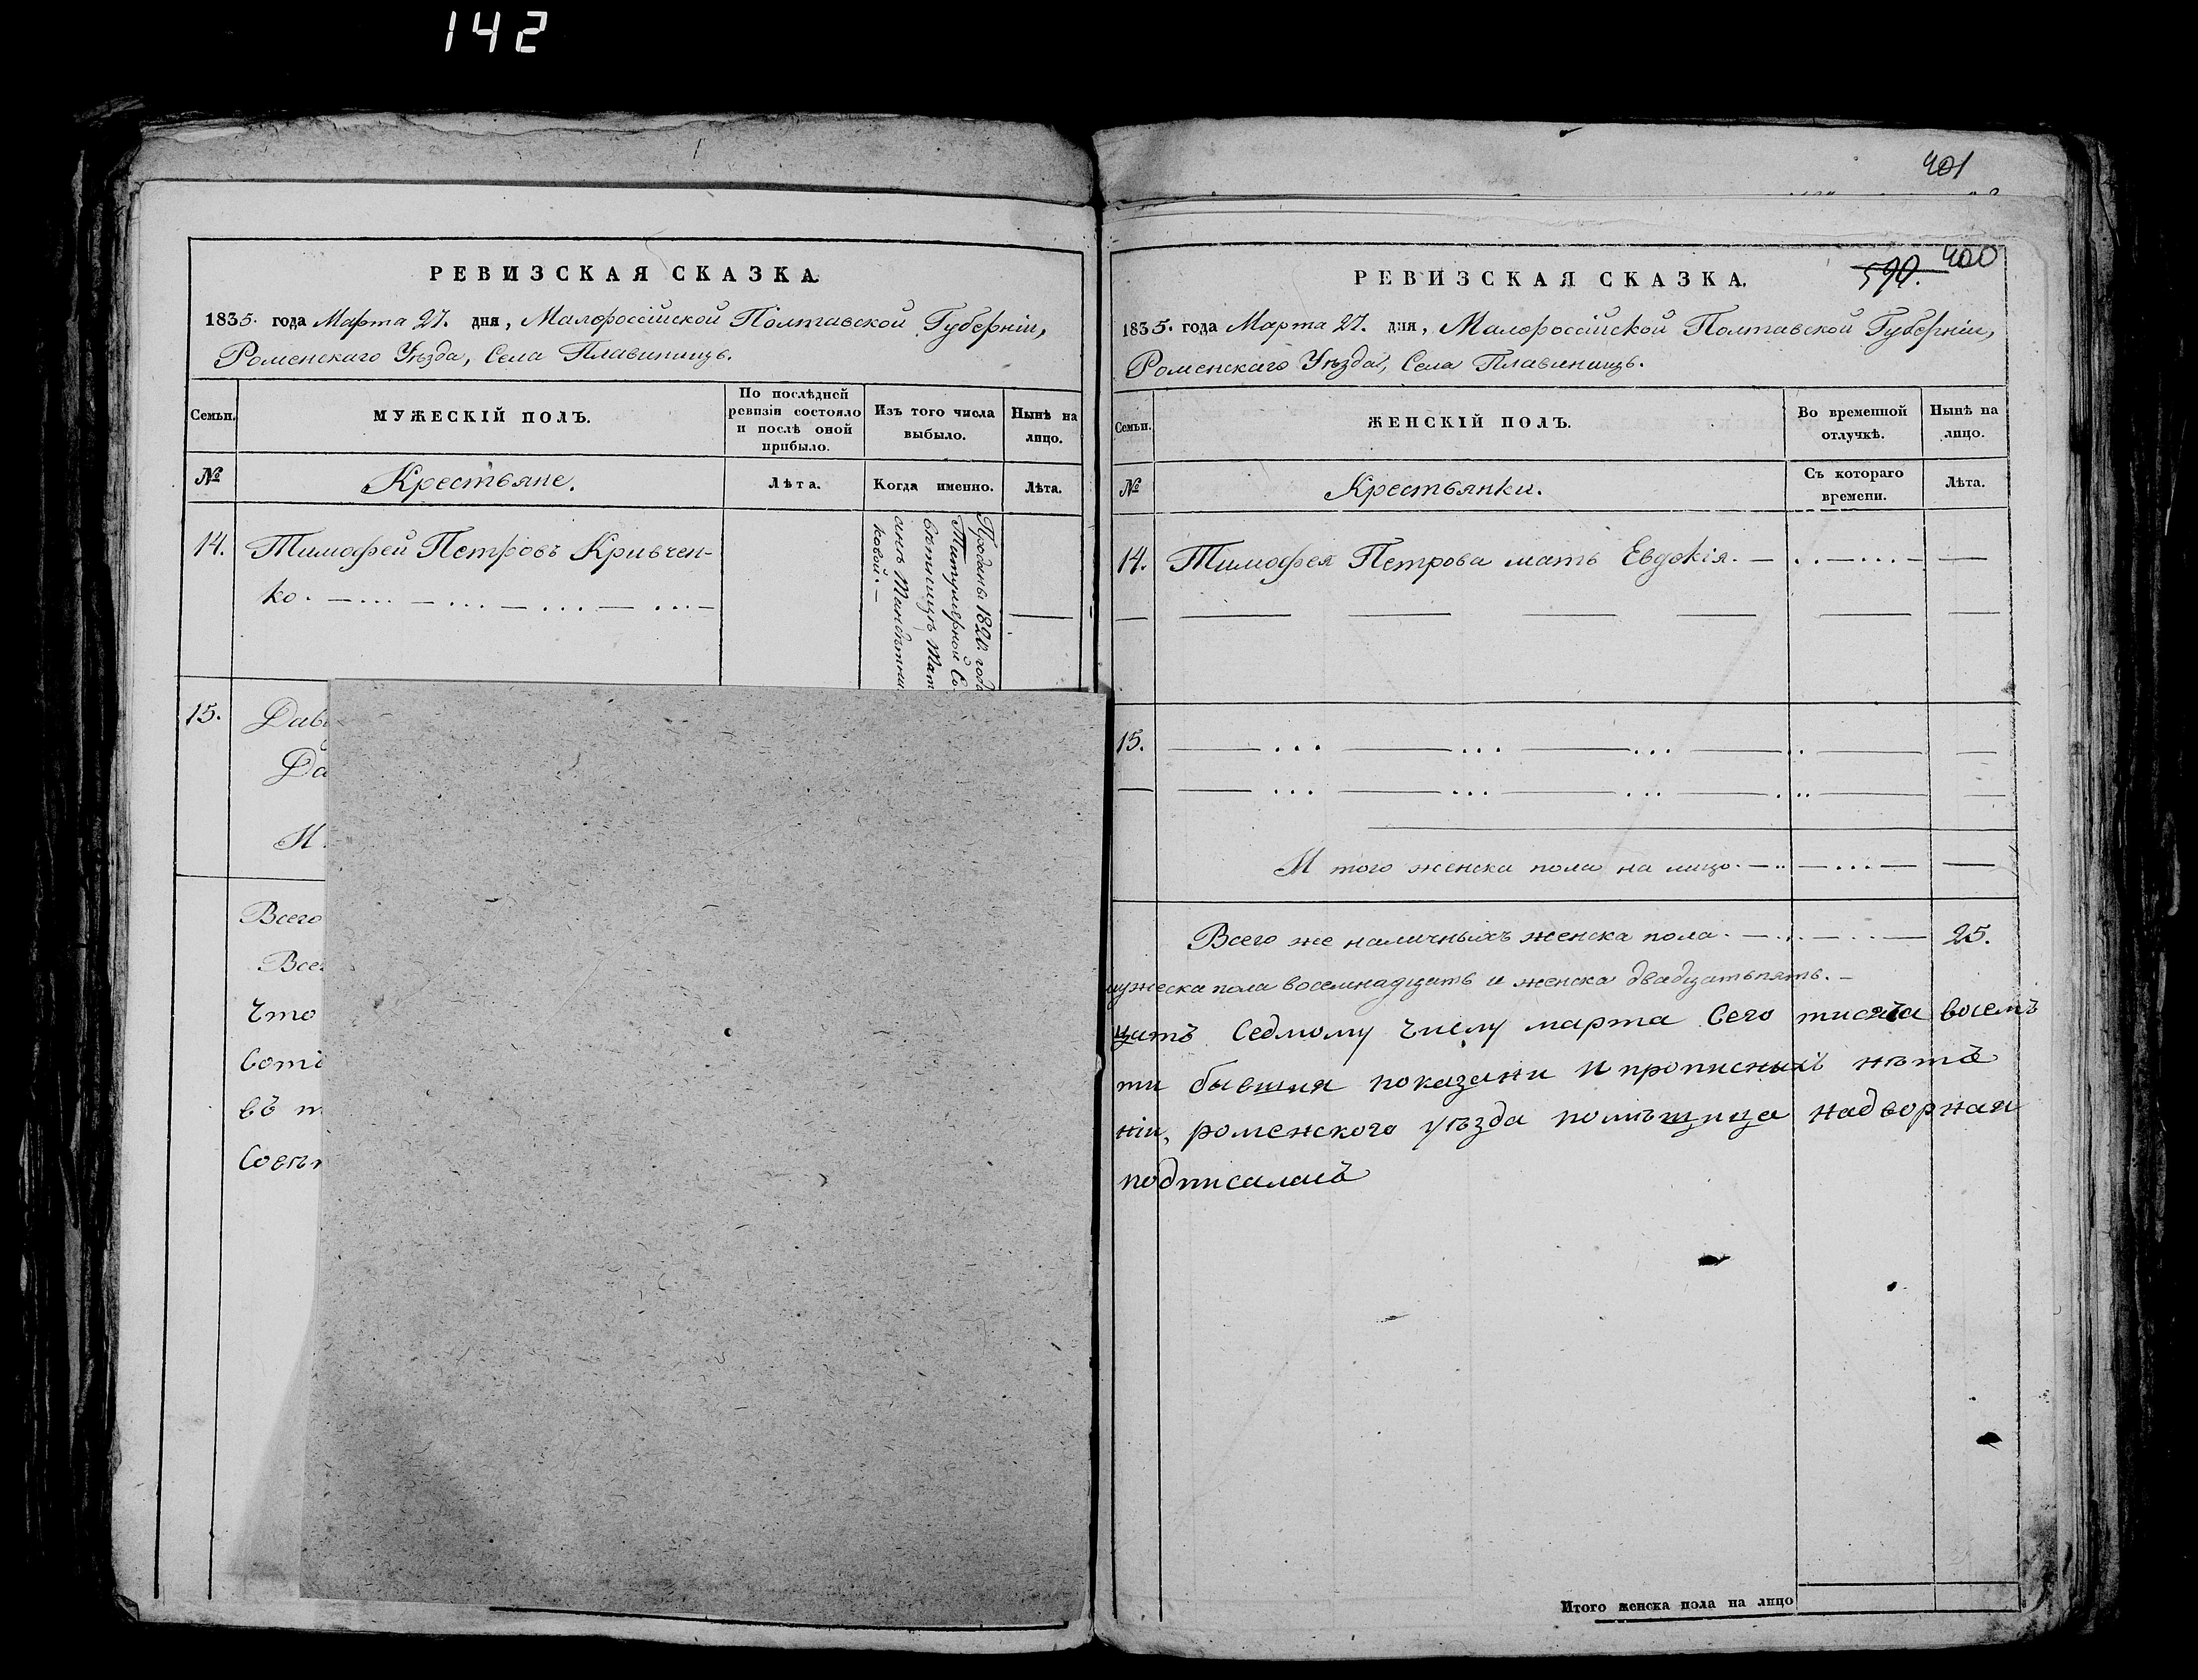 142
РЕВИЗСКАЯ СКАЗКА
1835. года Марта 27. дня, Малороссійской Полтавской Губерніи,
Роменскаго Уѣзда, Села Плавинищъ.
Семьи.
МУЖЕСКІЙ ПОЛЪ.
По послѣдней
ревизіи состояло
и послѣ оной
прибыло.
Изъ того числа
выбыло.
Нынѣ на
лицо.
№
Крестьяне.
Лѣта.
Когда именно.
Лѣта.
14. Тимофей Петровъ Кривчен-
ко.
Проданъ 1820. года
Титулярной Со-
вѣтницѣ
ковой.
15.
Всего
Что
въ
401
590. 400
РЕВИЗСКАЯ СКАЗКА.
1835. года Марта 27. дня, Малороссійской Полтавской Губерніи,
Роменскаго Уѣзда, Села Плавинищъ.
Семьи.
ЖЕНСКІЙ ПОЛЪ.
Во временной
отлучкѣ.
Нынѣ на
лицо.
№
Крестьянки.
Съ котораго
времени.
Лѣта.
14. Тимофея Петрова мать Евдокія.
15.
И того женска пола на лицо.
Всего же наличныхъ женска пола. 25.
мужеска пола восемнадцать и женска двадцатьпять.
цать Седмому числу марта Сего тисяча восемъ
ти бывшия показани и прописныхъ нѣтъ
ніи, роменского уѣзда помѣщица надворная
подписалась
Итого женска пола на лицо